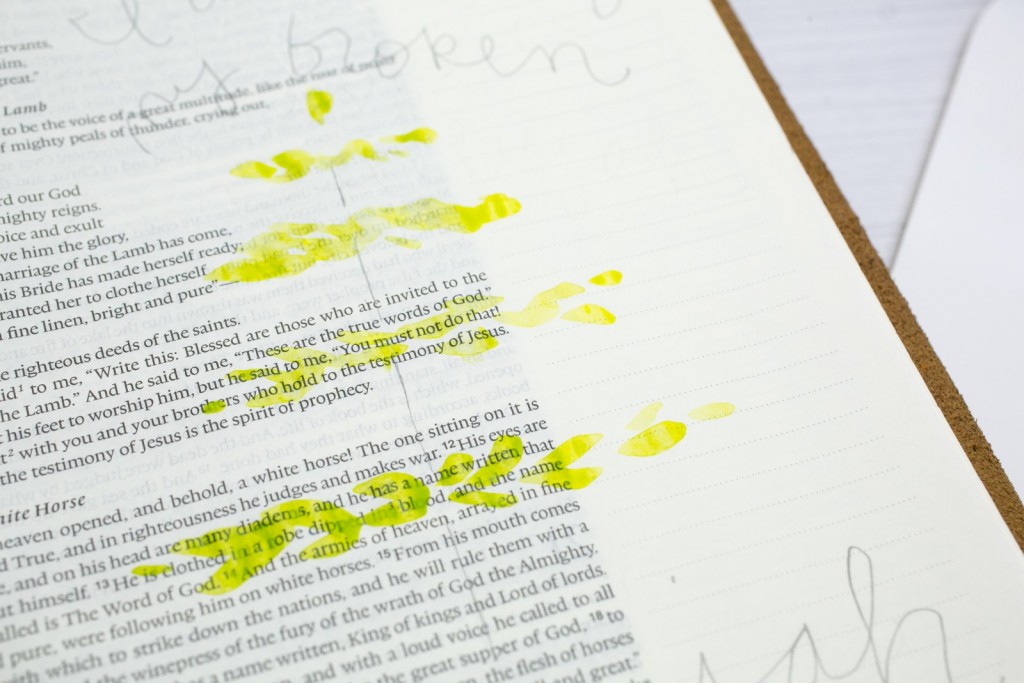 of broken
ervants,
him,
great."
Lamb
to be the voice of a great multitude, like the roar of many
f mighty peals of thunder, crying out,
rd our God
mighty reigns.
oice and exult
ve him the glory,
marriage of the Lamb has come,
his Bride has made herself ready;
ranted her to clothe herself
fine linen, bright and pure"—
e righteous deeds of the saints.
id¹ to me, "Write this: Blessed are those who are invited to the
he Lamb." And he said to me, "These are the true words of God."
his feet to worship him, but he said to me, "You must not do that!
t² with you and your brothers who hold to the testimony of Jesus.
the testimony of Jesus is the spirit of prophecy.
hite Horse
heaven opened, and behold, a white horse! The one sitting on it is
d True, and in righteousness he judges and makes war. ¹² His eyes are
e, and on his head are many diadems, and he has a name written that
ut himself. ¹³ He is clothed in a robe dipped in blood, and the name
alled is The Word of God. ¹⁴ And the armies of heaven, arrayed in fine
d pure, were following him on white horses. ¹⁵ From his mouth comes
with which to strike down the nations, and he will rule them with a
the winepress of the fury of the wrath of God the Almighty.
has a name written, King of kings and Lord of lords.
and with a loud voice he called to all
the great supper of God, ¹⁸ to
the flesh of horses
and great."